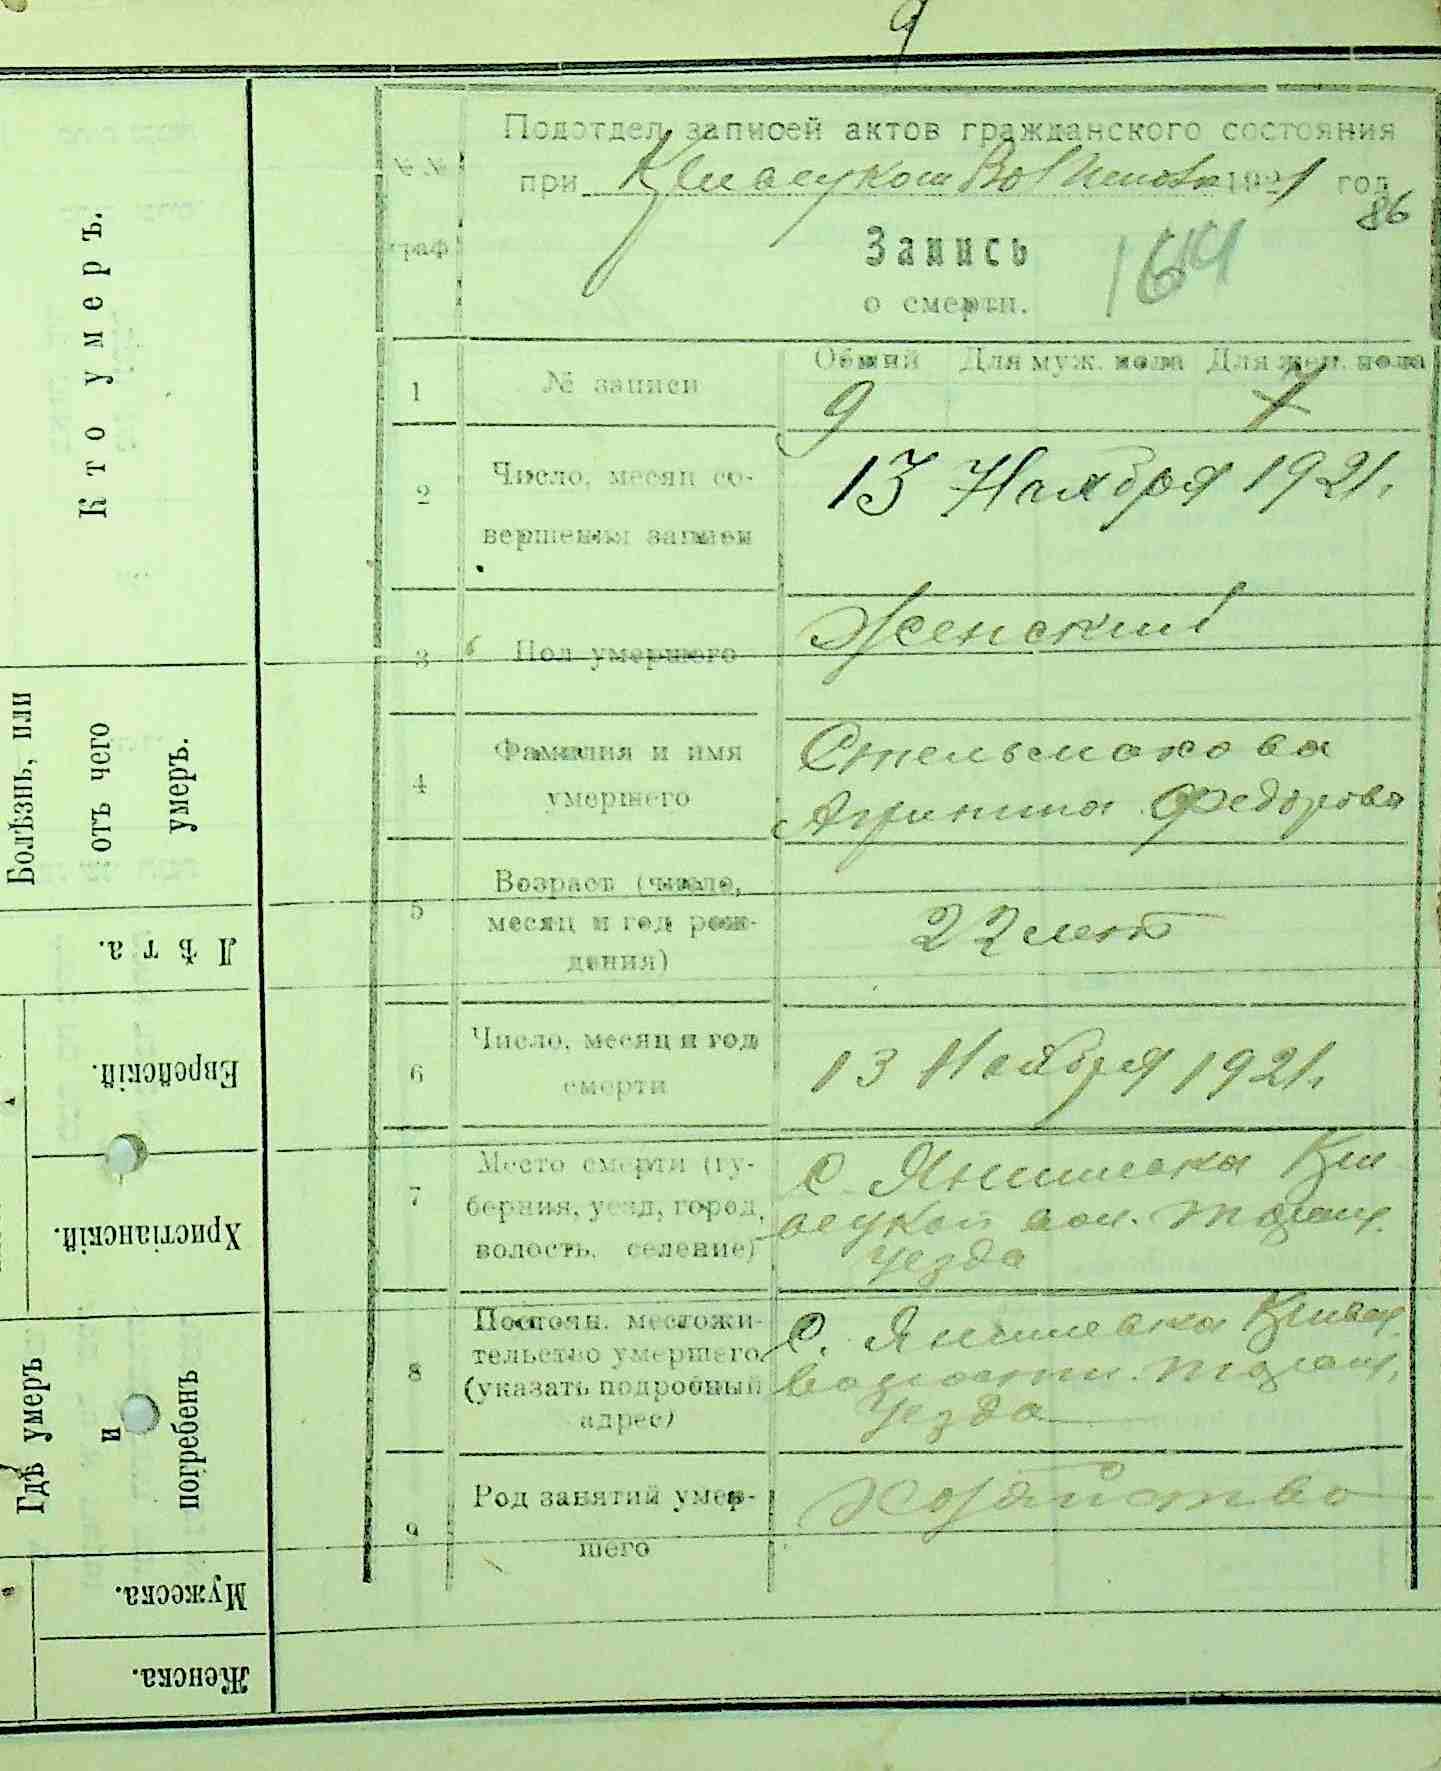 9
Кто умеръ.
Болѣзнь, или
отъ чего
умеръ.
Лѣта.
Еврейскій.
Христіанскій.
Гдѣ умеръ
и
погребенъ
Мужеска.
Женска.
№№
граф
Подотдел записей актов гражданского состояния
при 1921 год
86
Запись
о смерти.
164
Общий Для муж. пола Для жен. пола
1 № записи 9 7
2 Число, месяц со-
вершения записи
13 Ноября 1921.
3 Пол умершего Женский
4 Фамилия и имя
умершего
Стельмахова
Агринина Федорова
5 Возраст (число,
месяц и год рож-
дения)
22 лет
6 Число, месяц и год
смерти
13 Ноября 1921.
7 Место смерти (гу-
берния, уезд, город,
волость, селение)
с.
вол.
уезда
8 Постоян. местожи-
тельство умершего
(указать подробный
адрес)
с.
волости.
уезда
9 Род занятий умер-
шего
Хозяйство